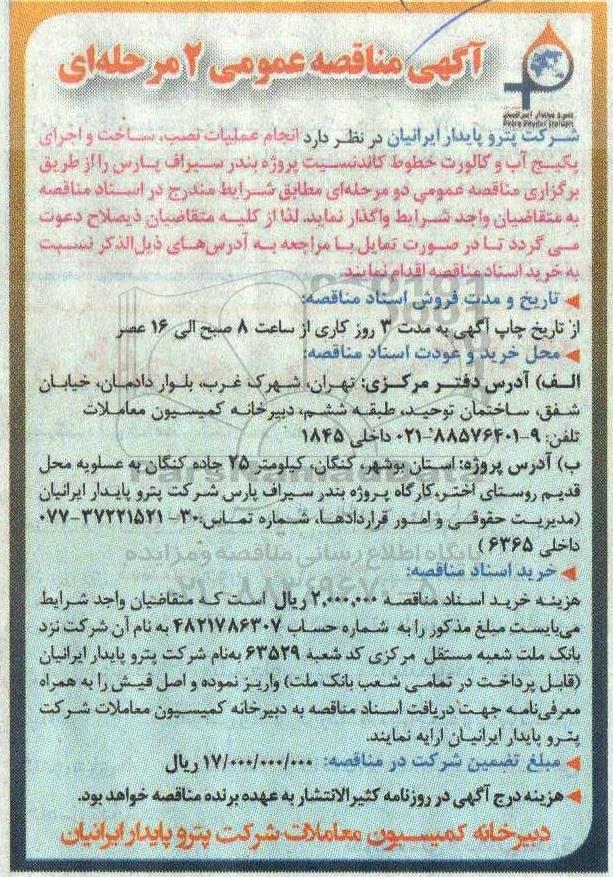 آگهی مناقصه عمومی ۲ مرحله‌ای
پترو پایدار ایرانیان
Petro Paydar Iranian
شرکت پترو پایدار ایرانیان در نظر دارد انجام عملیات نصب، ساخت و اجرای
پکیج آب و کالورت خطوط کاندنسیت پروژه بندر سیراف پارس را از طریق
برگزاری مناقصه عمومی دو مرحله‌ای مطابق شرایط مندرج در اسناد مناقصه
به متقاضیان واجد شرایط واگذار نماید. لذا از کلیه متقاضیان ذیصلاح دعوت
می گردد تا در صورت تمایل با مراجعه به آدرس‌های ذیل‌الذکر نسبت
به خرید اسناد مناقصه اقدام نمایند.
تاریخ و مدت فروش اسناد مناقصه:
از تاریخ چاپ آگهی به مدت ۳ روز کاری از ساعت ۸ صبح الی ۱۶ عصر
محل خرید و عودت اسناد مناقصه:
الف) آدرس دفتر مرکزی: تهران، شهرک غرب، بلوار دادمان، خیابان
شفق، ساختمان توحید، طبقه ششم، دبیرخانه کمیسیون معاملات
تلفن: ۹-۸۸۵۷۶۴۰۱-۰۲۱ داخلی ۱۸۴۵
ب) آدرس پروژه: استان بوشهر، کنگان، کیلومتر ۲۵ جاده کنگان به عسلویه محل
قدیم روستای اختر، کارگاه پروژه بندر سیراف پارس شرکت پترو پایدار ایرانیان
(مدیریت حقوقی و امور قراردادها، شماره تماس: ۳۰-۳۷۲۲۱۵۲۱-۰۷۷
داخلی ۶۳۶۵)
خرید اسناد مناقصه:
هزینه خرید اسناد مناقصه ۲,۰۰۰,۰۰۰ ریال است که متقاضیان واجد شرایط
می‌بایست مبلغ مذکور را به شماره حساب ۴۸۲۱۷۸۶۳۰۷ به نام آن شرکت نزد
بانک ملت شعبه مستقل مرکزی کد شعبه ۶۳۵۲۹ به‌نام شرکت پترو پایدار ایرانیان
(قابل پرداخت در تمامی شعب بانک ملت) واریز نموده و اصل فیش را به همراه
معرفی‌نامه جهت دریافت اسناد مناقصه به دبیرخانه کمیسیون معاملات شرکت
پترو پایدار ایرانیان ارایه نمایند.
مبلغ تضمین شرکت در مناقصه: ۱۷/۰۰۰/۰۰۰/۰۰۰ ریال
هزینه درج آگهی در روزنامه کثیرالانتشار به عهده برنده مناقصه خواهد بود.
دبیرخانه کمیسیون معاملات شرکت پترو پایدار ایرانیان